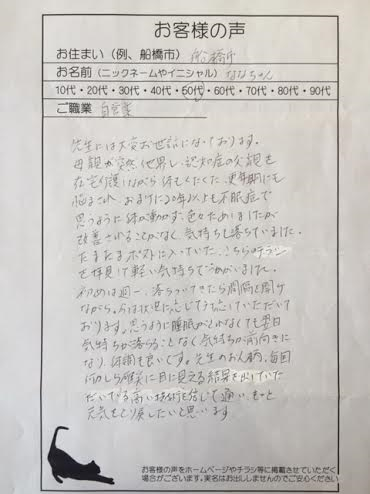 お客様の声
お住まい(例、船橋市) 船橋市
お名前(ニックネームやイニシャル) ななちゃん
10代・20代・30代・40代・50代・60代・70代・80代・90代
ご職業 自営業
先生には大変お世話になっております。
母親が突然他界し、認知症の父親を
在宅介護しながら体もくたくた、更年期にも
悩まされ、おまけに20年以上も不眠症で
思うように体が動かず、色々ためしましたが
改善されることがなく、気持ちも落ちていました。
たまたまポストに入っていた、こちらのチラシ
を拝見して軽い気持ちでうかがいました。
初めは週一、落ちついてきたら間隔を開け
ながら。今は状況に応じてうかがっていただいて
おります。思うように睡眠がとれなくても翌日
気持ちが落ちることなく気持ちが前向きに
なり、体調も良いです。先生のお人柄、毎回
何かしら確実に目に見える結果を出していた
だいてる高い技術を信じて通い、もっと
元気をとり戻したいと思います
お客様の声をホームページやチラシ等に掲載させていただく
場合がございます。実名はお出ししませんのでご安心ください